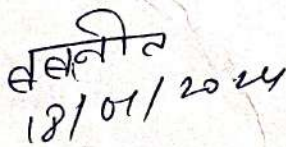 बबनीत
18/01/2024